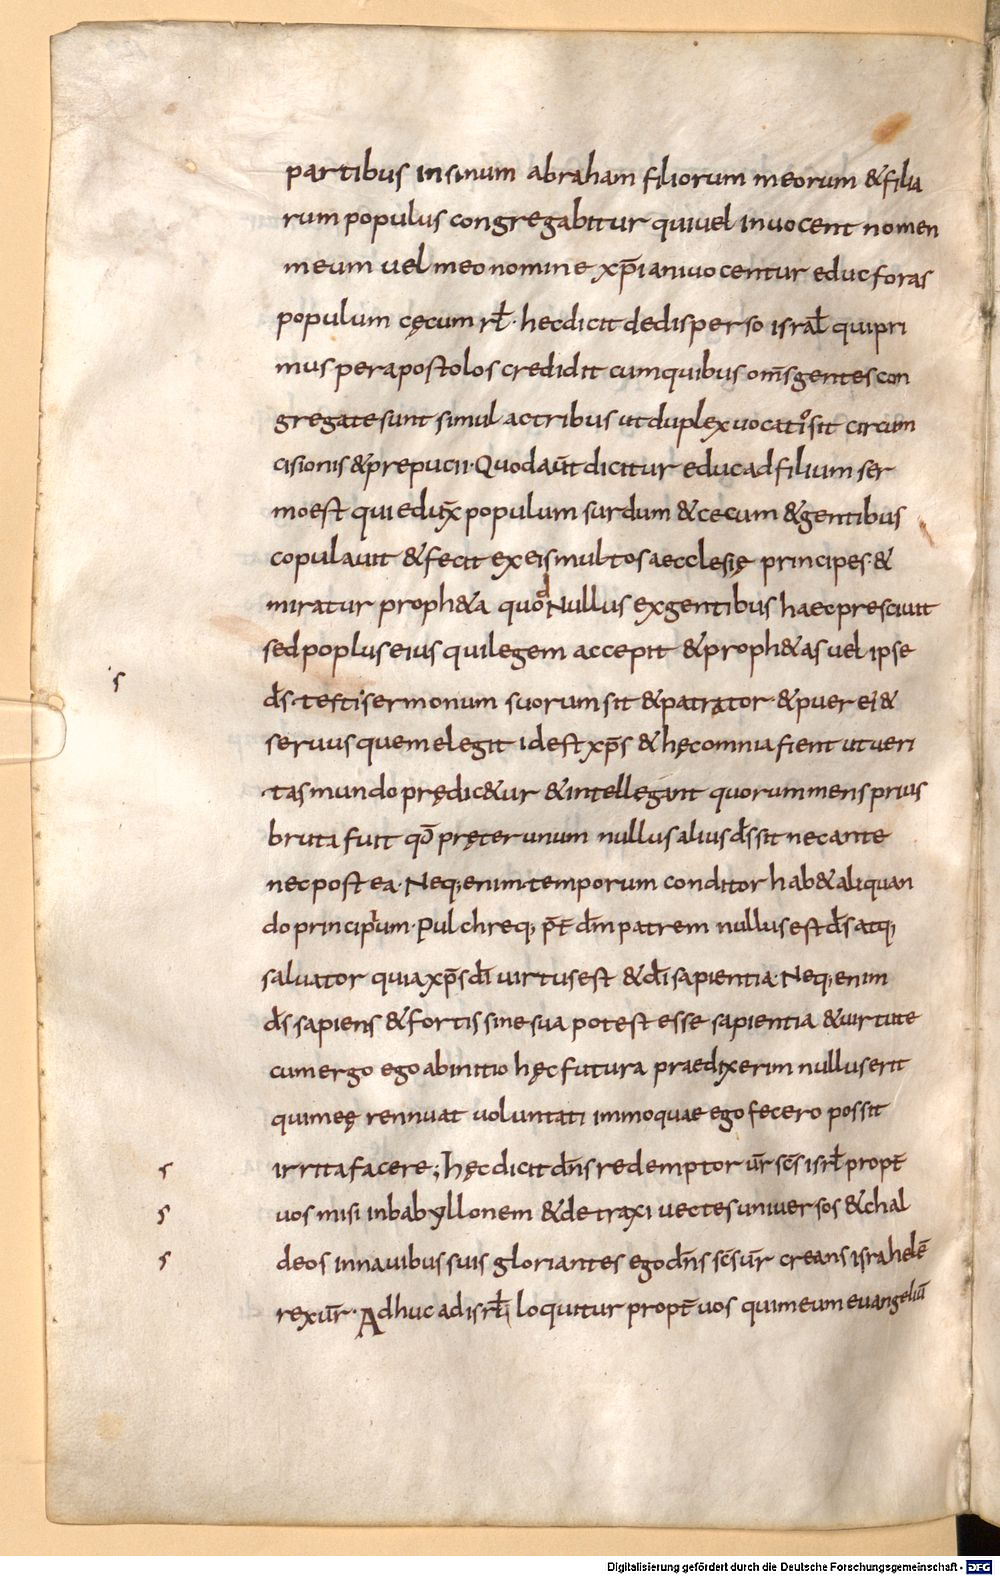 partibus insinum abraham filiorum meorum &filia
rum populus congregabitur quiuel inuocent nomen
meum uel meo nomine xp̄iani uocentur educ foras
populum cęcum rƚ· hec dicit de disperso israƚ qui pri
mus per apostolos credidit cum quibus om̄s gentes con
gregate sunt simul ac tribus ut duplex uocatio sit circum
cisionis & prepucii· Quod aūt dicitur educ ad filium ser
mo est qui edux̄ populum surdum & cecum & gentibus
copulauit & fecit ex eis multos aecclesię principes· &
miratur proph&a quod Nullus ex gentibus haec presciuit
sed poplus eius qui legem accepit & proph&as uel ipse
d̄s· testi sermonum suorum sit & patrator· & puer ei &
seruus quem elegit id est xp̄s & hęc omnia fient ut ueri
tas mundo prędic&ur & intellegant quorum mens prius
bruta fuit qđ pręter unum nullus alius d̄s sit nec ante
nec post ea· Neq; enim temporum conditor hab& aliquan
do principium· Pulchreq; p̄t d̄m patrem nullus est d̄s atq;
saluator quia xp̄s d̄i uirtus est & d̄i sapientia· Neq; enim
d̄s sapiens & fortis sine sua potest esse sapientia & uirtute
cum ergo ego ab initio hęc futura praedixerim nullus erit
qui meę rennuat uoluntati immo quae ego fecero possit
irrita facere; hęc dicit dn̄s redemptor ur̄ sc̄s isrƚ propt̄
uos misi in babyllonem & detraxi uectes uniuersos & chal
deos in nauibus suis gloriantes ego dn̄s sc̄s ur̄ creans israhelē
rex ur̄· Adhuc ad isrƚ loquitur propt̄ uos qui meum euangeliū
s
s
s
s
Digitalisierung gefördert durch die Deutsche Forschungsgemeinschaft - DFG